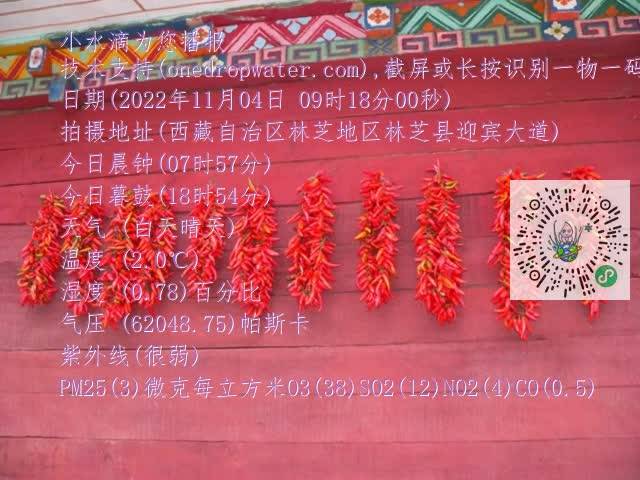 小水滴为您播报
技术支持(onedropwater.com),截屏或长按识别一物一码
日期(2022年11月04日 09时18分00秒)
拍摄地址(西藏自治区林芝地区林芝县迎宾大道)
今日晨钟(07时57分)
今日暮鼓(18时54分)
天气 (白天晴天)
温度 (2.0℃)
湿度 (0.78)百分比
气压 (62048.75)帕斯卡
紫外线(很弱)
PM25(3)微克每立方米O3(38)SO2(12)NO2(4)CO(0.5)